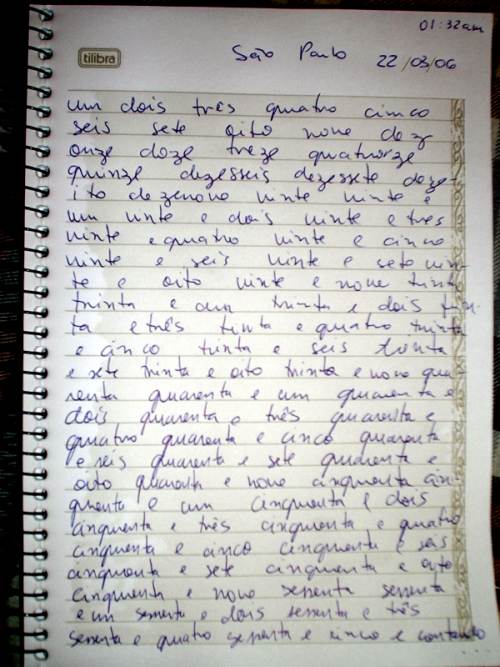 01:32am
tilibra
São Paulo 22/03/06
um dois três quatro cinco
seis sete oito nove dez
onze doze treze quatorze
quinze dezesseis dezessete deze-
ito dezenove vinte vinte e
um vinte e dois vinte e três
vinte e quatro vinte e cinco
vinte e seis vinte e sete vin-
te e oito vinte e nove trinta
trinta e um trinta e dois trin-
ta e três tinta e quatro trinta
e cinco trinta e seis trinta
e sete trinta e oito trinta e nove qua-
renta quarenta e um quarenta e
dois quarenta e três quarenta e
quatro quarenta e cinco quarenta
e seis quarenta e sete quarenta e
oito quarenta e nove cinquenta cin-
quenta e um cinquenta e dois
cinquenta e três cinquenta e quatro
cinquenta e cinco cinquenta e seis
cinquenta e sete cinquenta e oito
cinquenta e nove sessenta sessenta
e um sessenta e dois sessenta e três
sessenta e quatro sessenta e cinco e contando